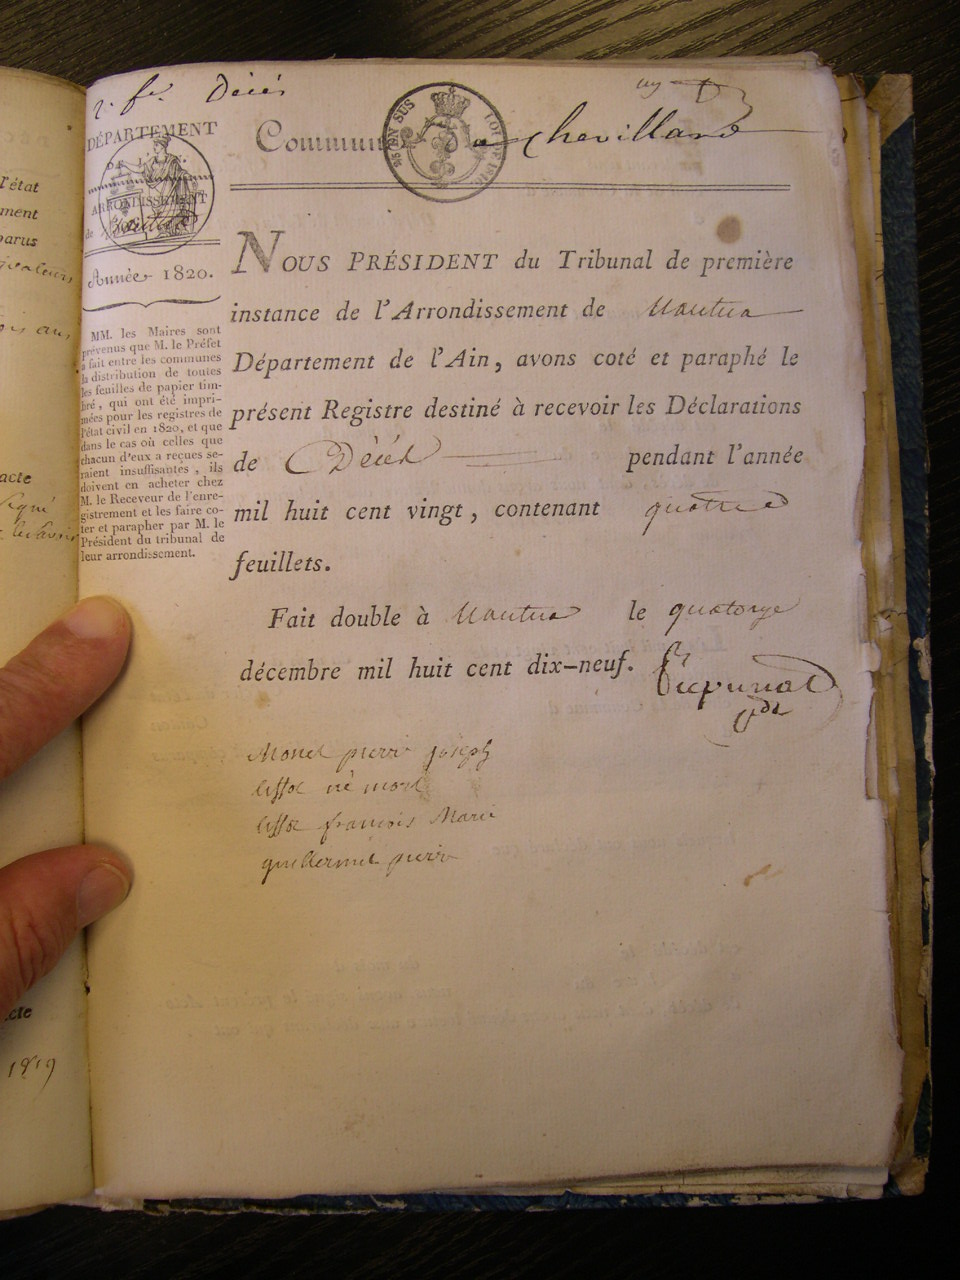 Décès
Commune de Chevilland
DÉPARTEMENT
ARRONDISSEMENT
de Nantua
Année 1820.
MM. les Maires sont
prévenus que M. le Préfet
a fait entre les communes
la distribution de toutes
les feuilles de papier tim-
bré, qui ont été impri-
mées pour les registres de
l'état civil en 1820, et que
dans le cas où celles que
chacun d'eux a reçues se-
raient insuffisantes, ils
doivent en acheter chez
M. le Receveur de l'enre-
gistrement et les faire co-
ter et parapher par M. le
Président du tribunal de
leur arrondissement.
NOUS PRÉSIDENT du Tribunal de première
instance de l'Arrondissement de Nantua
Département de l'Ain, avons coté et paraphé le
présent Registre destiné à recevoir les Déclarations
de Décès pendant l'année
mil huit cent vingt, contenant quatre
feuillets.
Fait double à Nantua le quatorze
décembre mil huit cent dix-neuf.
Monet pierre joseph
lissoe né mort
lissoe françois Marie
guillermet pierre
l'état
ment
parus
acte
signé
acte
1819